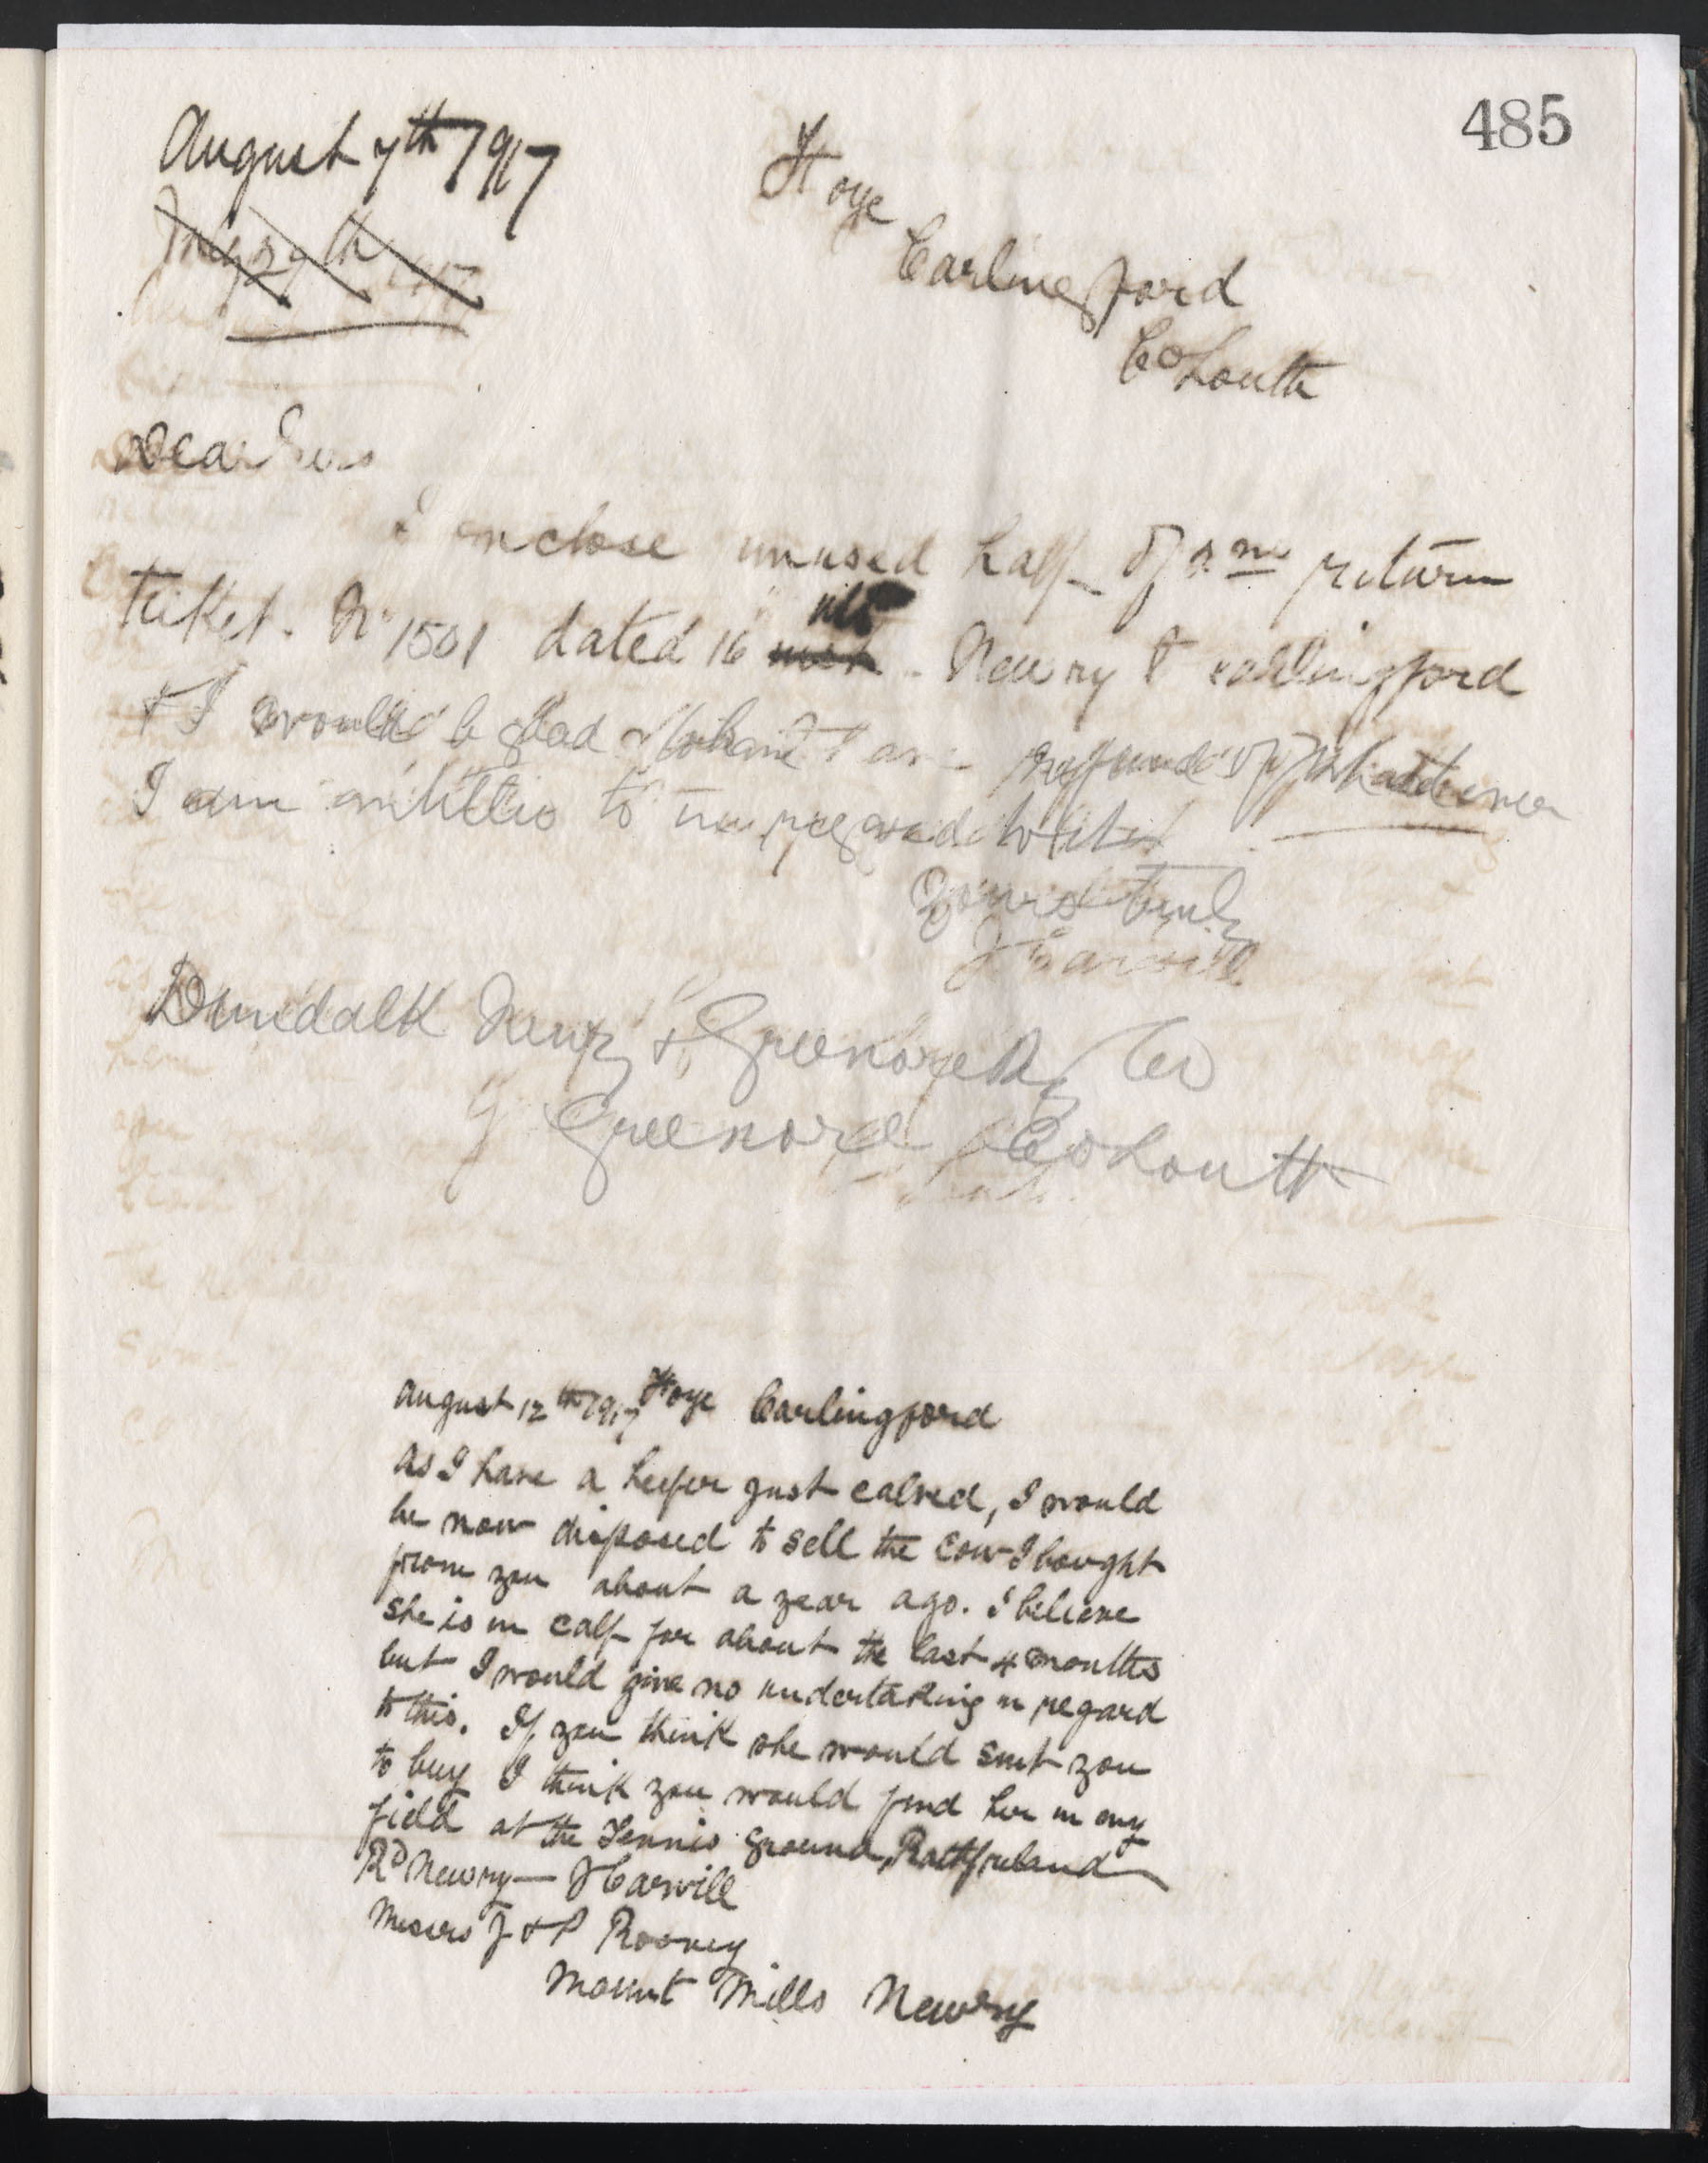 485
August 7th 1917
Foye
Carlingford
Co Louth
July 27th 1917
Dear Sirs
I enclose unused half of return
ticket. No 1501 dated 16 ult Newry & Carlingford
& I would be glad to have refund of whatever
I am entitled to in regard to it
Yours truly
J Carvill
Dundalk Newry & Greenore Ry Co
Greenore Co Louth
August 12th 1917 Foye Carlingford
As I have a heifer just calved, I would
be now disposed to sell the cow I bought
from you about a year ago. I believe
she is in calf for about the last 4 months
but I would give no undertaking in regard
to this. If you think she would suit you
to buy I think you would find her in my
field at the Tennis ground, Rathfriland
Rd Newry — J Carvill
Messrs J & P Rooney
Mount Mills Newry